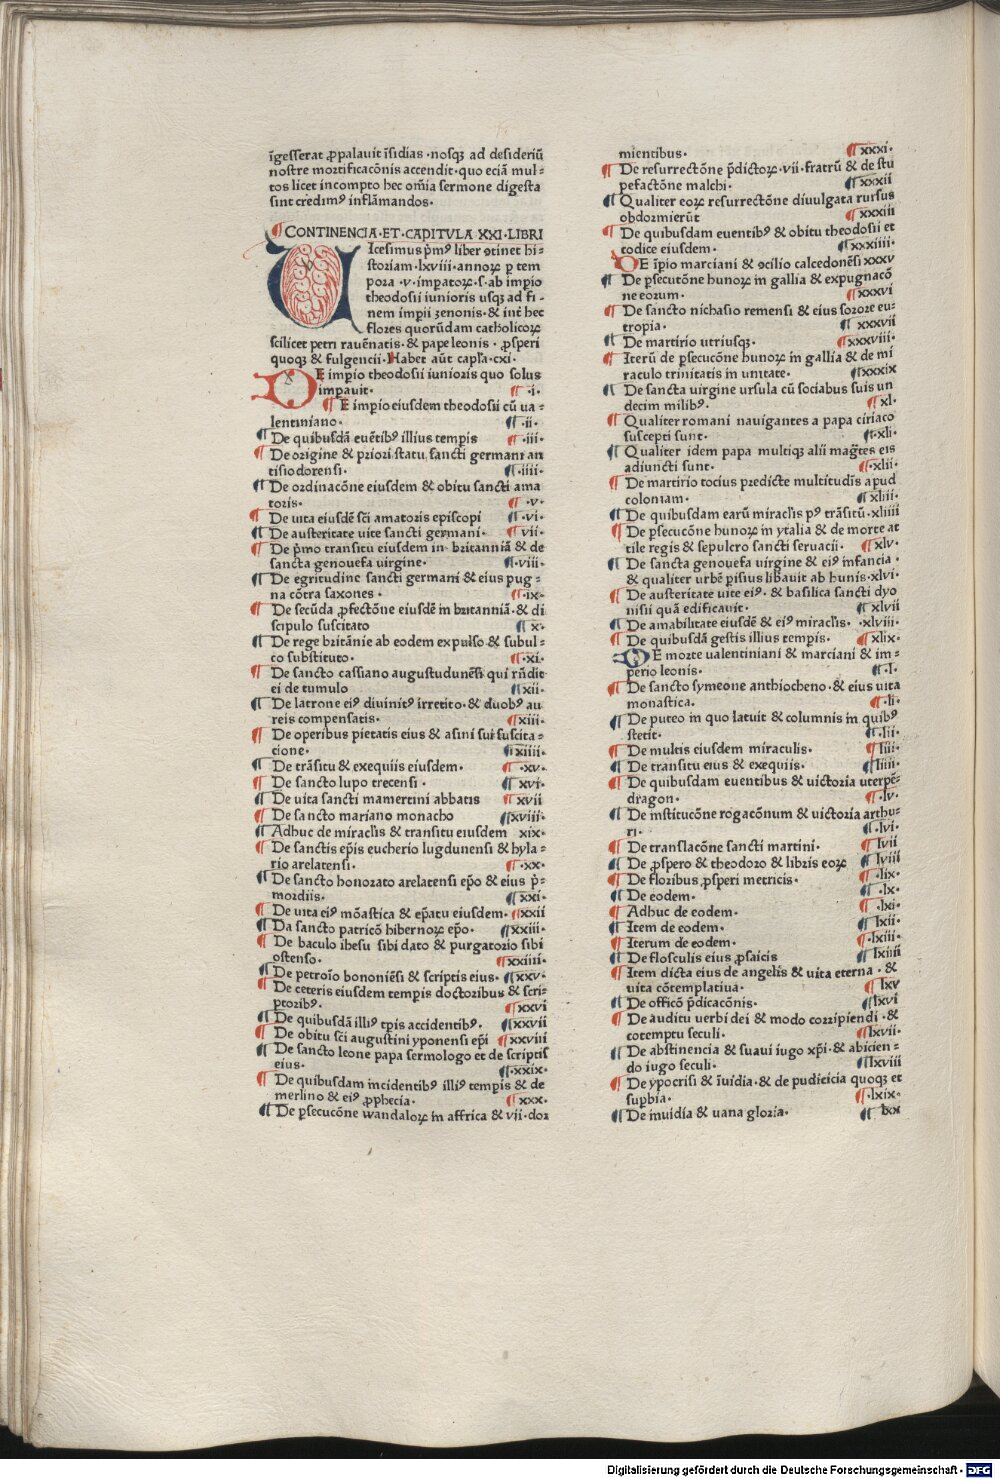 īgesserat ꝓpalauit īsidias ·nosqꝫ ad desideriū
nostre mortificacōnis accendit· quo eciā mul⸗
tos licet incompto hec om̄ia sermone digesta
sint credimꝰ inflāmandos·
¶ CONTINENCIA·ET·CAPITVLA XXI·LIBRI
UIcesimus p̄mꝰ liber ꝯtinet hi⸗
storiam·lxviii·annoꝝ p tem
pora ·v·impatoꝝ·s·ab imp̄io
theodosii iunioris usqꝫ ad fi⸗
nem imp̄ii zenonis·& int̄ hec
flores quorūdam catholicoꝝ
scilicet petri rauēnatis·& pape leonis · ꝓsperi
quoqꝫ & fulgencii·Habet aūt capl̄a·cxi·
DE imp̄io theodosii iunioris quo solus
impauit· ¶ ·i·
¶ E imp̄io eiusdem theodosii cū ua⸗
lentiniano· ¶ ·ii·
¶ De quibusdā euētibꝰ illius temp̄is ¶ ·iii·
¶ De origine & priori statu sancti germani an
tisiodorensi· ¶ ·iiii·
¶ De ordinacōne eiusdem & obitu sancti ama
toris· ¶ ·v·
¶ De uita eiusdē sc̄i amatoris episcopi ¶ ·vi·
¶ De austeritate uite sancti germani· ¶ vii·
¶ De p̄mo transitu eiusdem in britanniā & de
sancta genouefa uirgine· ¶ ·viii·
¶ De egritudine sancti germani & eius pug⸗
na cōtra saxones · ¶ ·ix·
¶ De secūda ꝓfectōne eiusdē in britanniā·& di
scipulo suscitato ¶ x·
¶ De rege britānie ab eodem expulso & subul⸗
co substituto· ¶ ·xi·
¶ De sancto cassiano augustudunēsi qui rn̄dit
ei de tumulo ¶ xii·
¶ De latrone eiꝰ diuinitꝰ irretito·& duobꝰ au
reis compensatis· ¶ xiii·
¶ De operibus pietatis eius & asini sui suscita⸗
cione· ¶ xiiii·
¶ De trāsitu & exequiis eiusdem· ¶ ·xv·
¶ De sancto lupo trecensi · ¶ xvi·
¶ De uita sancti mamertini abbatis ¶ xvii
¶ De sancto mariano monacho ¶ xviii·
¶ Adhuc de miracl̄is & transitu eiusdem xix·
¶ De sanctis ep̄is eucherio lugdunensi & hyla⸗
rio arelatensi· ¶ ·xx·
¶ De sancto honorato arelatensi ep̄o & eius p̄⸗
mordiis· ¶ xxi·
¶ De uita eiꝰ mōastica & ep̄atu eiusdem· ¶ xxii
¶ Da sancto patricō hibernoꝝ ep̄o· ¶ xxiii·
¶ De baculo ihesu sibi dato & purgatorio sibi
ostenso· ¶ xxiiii·
¶ De petroīo bononiēsi & scriptis eius· ¶ xxv·
¶ De ceteris eiusdem temp̄is doctoribus & scri⸗
ptoribꝰ· ¶ xxvi
¶ De quibusdā illiꝰ tp̄is accidentibꝰ· ¶ xxvii
¶ De obitu sc̄i augustini yponensi ep̄i ¶ xxviii
¶ De sancto leone papa sermologo et de scriptis
eius· ¶ ·xxix·
¶ De quibusdam incidentibꝰ illiꝰ temp̄is & de
merlino & eiꝰ ꝓphecia· ¶ xxx·
¶ De p̄secucōne wandaloꝝ in affrica & vii·dor
mientibus· ¶ xxxi·
¶ De resurrectōne p̄dictoꝝ·vii·fratrū & de stu
pefactōne malchi· ¶ xxxii
¶ Qualiter eoꝝ resurrectōne diuulgata rursus
obdormierūt ¶ xxxiii
¶ De quibusdam euentibꝰ & obitu theodosii et
codice eiusdem· ¶ xxxiiii·
DE īpio marciani & ꝯcilio calcedonēsi xxxv
¶ De p̄secutōne hunoꝝ in gallia & expugnacō
ne eorum· ¶ xxxvi
¶ De sancto nichasio remensi & eius sorore eu⸗
tropia· ¶ xxxvii
¶ De martirio utriusqꝫ· ¶ xxxviii·
¶ Iterū de p̄secucōne hunoꝝ in gallia & de mi
raculo trinitatis in unitate· ¶ xxxix
¶ De sancta uirgine ursula cū sociabus suis un
decim milibꝰ· ¶ xl·
¶ Qualiter romani nauigantes a papa ciriaco
suscepti sunt· ¶ ·xli·
¶ Qualiter idem papa multiqꝫ alii mag̅tes eis
adiuncti sunt· ¶ ·xlii·
¶ De martirio tocius predicte multitudīs apud
coloniam· ¶ xliii·
¶ De quibusdam earū miracl̄is pꝰ trāsitū·xliiii
¶ De p̄secucōne hunoꝝ in ytalia & de morte at
tile regis & sepulcro sancti seruacii· ¶ xlv·
¶ De sancta genouefa uirgine & eiꝰ infancia ·
& qualiter urbē pisius libauit ab hunis·xlvi·
¶ De austeritate uite eiꝰ·& basilica sancti dyo
nisii quā edificauit· ¶ xlvii
¶ De amabilitate eiusdē & eiꝰ miracl̄is· ·xlviii·
¶ De quibusdā gestis illius temp̄is· ¶ xlix·
DE morte ualentiniani & marciani & im⸗
perio leonis· ¶ ·l·
¶ De sancto symeone anthiocheno·& eius uita
monastica· ¶ ·li·
¶ De puteo in quo latuit & columnis in quibꝰ
stetit· ¶ ·lii·
¶ De multis eiusdem miraculis· ¶ liii·
¶ De transitu eius & exequiis· ¶ liiii·
¶ De quibusdam euentibus & uictoria uterpē⸗
dragon· ¶ ·lv·
¶ De institucōne rogacōnum & uictoria arthu⸗
ri· ¶ ·lvi·
¶ De translacōne sancti martini· ¶ lvii
¶ De ꝓspero & theodoro & libris eoꝝ ¶ lviii
¶ De floribus ꝓsperi metricis· ¶ ·lix·
¶ De eodem· ¶ ·lx·
¶ Adhuc de eodem· ¶ ·lxi·
¶ Item de eodem· ¶ lxii·
¶ Iterum de eodem· ¶ ·lxiii·
¶ De flosculis eius ꝓsaicis ¶ lxiiii
¶ Item dicta eius de angelis & uita eterna · &
uita cōtemplatiua· ¶ lxv
¶ De officō p̄dicacōnis· ¶ lxvi
¶ De auditu uerbi dei & modo corripiendi ·&
cotemptu seculi· ¶ lxvii·
¶ De abstinencia & suaui iugo xp̄i·& abicien⸗
do iugo seculi· ¶ lxviii
¶ De ypocrisi & īuidia·& de pudicicia quoqꝫ et
supbia· ¶ ·lxix·
¶ De inuidia & uana gloria· ¶ lxx
Digitalisierung gefördert durch die Deutsche Forschungsgemeinschaft · DFG